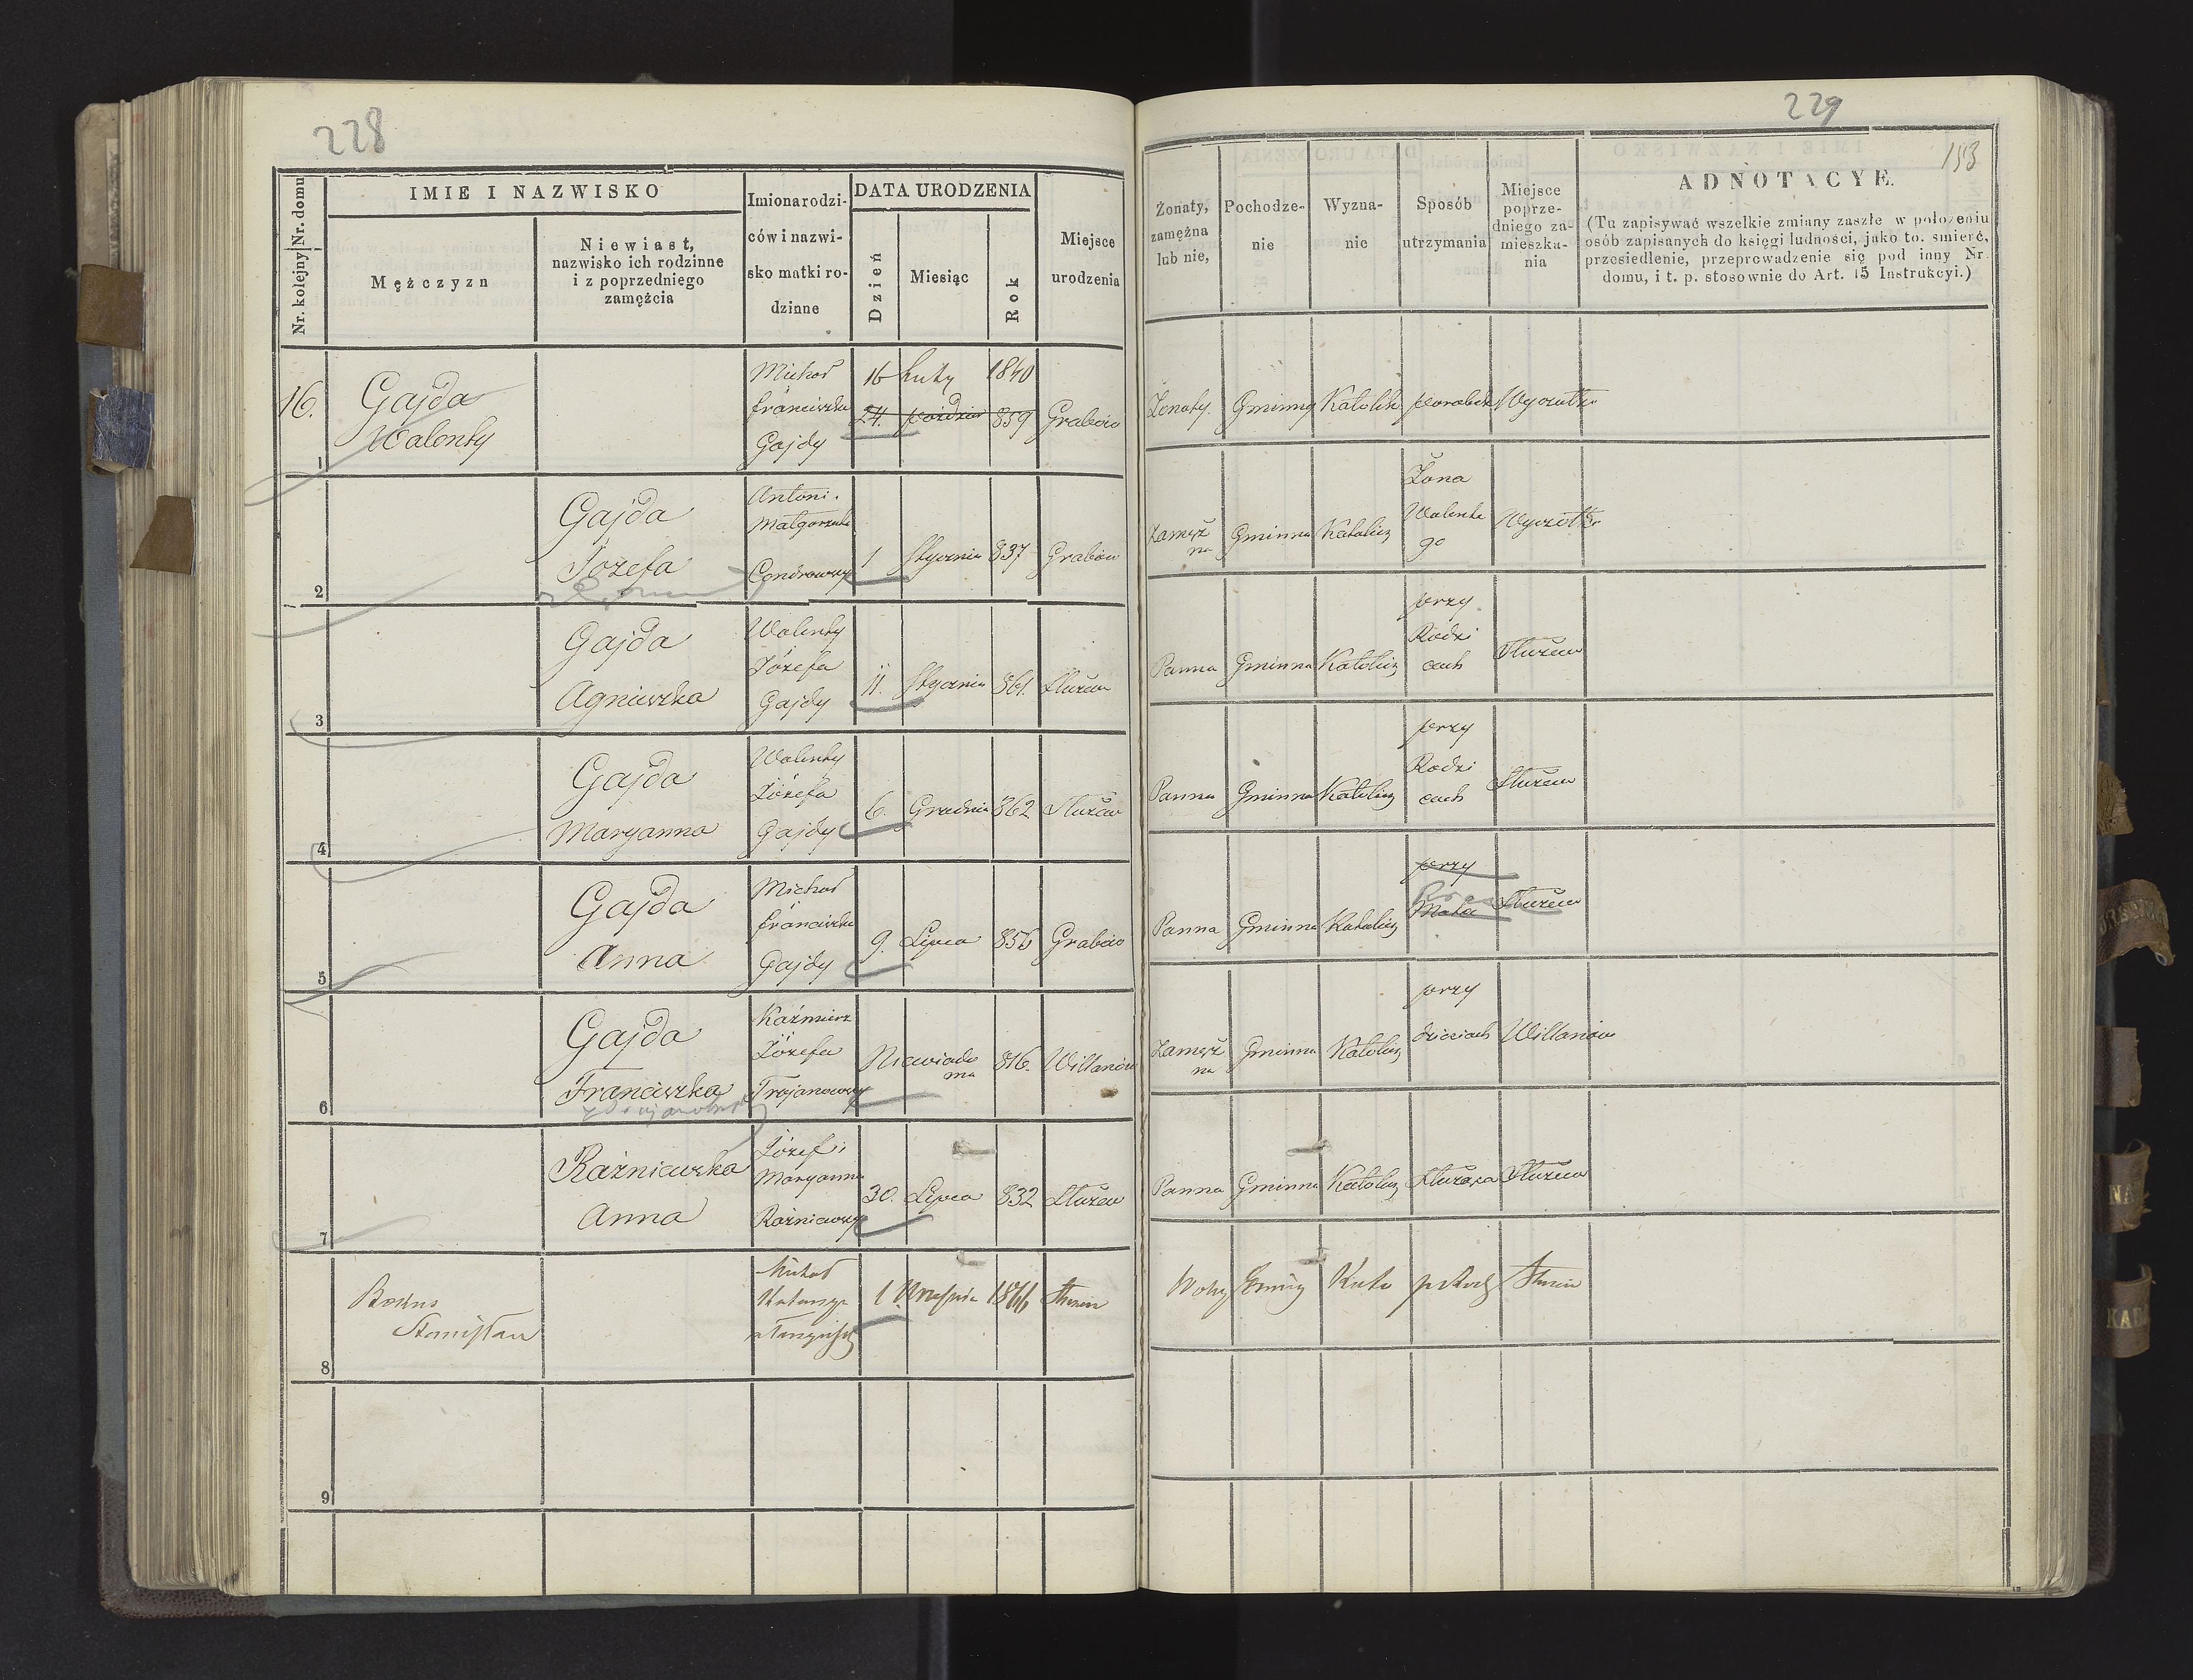 228
IMIE I NAZWISKO
Nr. kolejny Nr. domu
Mężczyzn
Niewiast,
nazwisko ich rodzinne
i z poprzedniego
zamężcia
Imiona rodzi-
ców i nazwi-
sko matki ro-
dzinne
DATA URODZENIA
Dzień
Miesiąc
Rok
Miejsce
urodzenia
16.
1
Gajda
Walenty
Michał
franciszka
Gajdy
16 Luty 1840
24. paździer 859
Grabów
2
Gajda
Józefa
Antoni
Małgorzata
1 Stycznia 837
Grabów
3
Gajda
Agnieszka
Walenty
Józefa
Gajdy
11. Stycznia 861.
Służew
4
Gajda
Maryanna
Walenty
Józefa
Gajdy
6. Grudnia 862
Służew
5
Gajda
Anna
Michał
franciszka
Gajdy
9. Lipca 856
Grabów
6
Gajda
Franciszka
Kaźmierz
Józefa
Trojanowscy
Niewiado
ma
816.
Willanów
7
Raźniewska
Anna
Józef i
Maryanna
Raźniewscy
30. Lipca 832
Służew
8
Stanisław
Michał
Katarzyna
1 Września
Służew
9
229
153
Żonaty,
zamężna
lub nie,
Pochodze-
nie
Wyzna-
nie
Sposób
utrzymania
Miejsce
poprze-
dniego za-
mieszka-
nia
ADNOTACYE.
(Tu zapisywać wszelkie zmiany zaszłe w położeniu
osób zapisanych do księgi ludności, jako to. śmierć,
przesiedlenie, przeprowadzenie się pod inny Nr.
domu, i t. p. stosownie do Art. 15 Instrukcyi.)
Żonaty. Gminny Katolik parobek Wyczółki
Zamęż
na
Gminna Katolicz
Żona
Walente
go
Wyczółki
Panna Gminna Katolicz
przy
Rodzi
cach
Służew
Panna Gminna Katolicz
przy
Rodzi
cach
Służew
Panna Gminna Katolicz
przy
Służew
Zamęż
na
Gminna Katolicz
przy
dzieciach
Willanów
Panna Gminna Katolicz Służąca Służew
Wolny Gminny Kato Służew